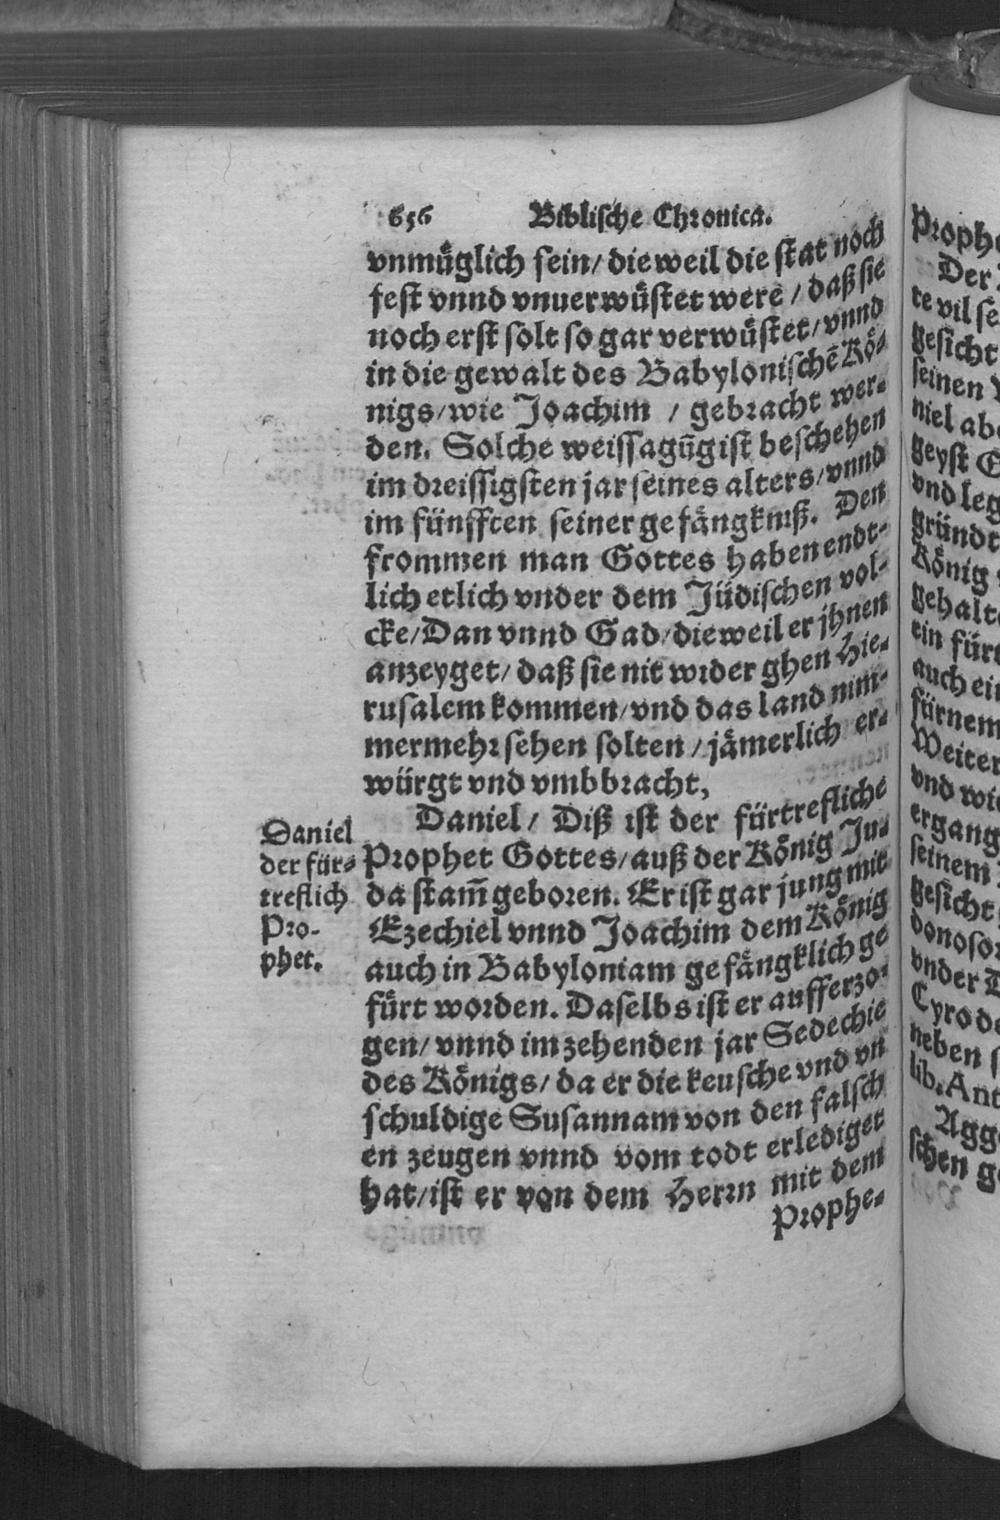 656 Biblische Chronica.
vnmüglich sein/ dieweil die stat noch
fest vnnd vnuerwüstet were / daß sie
noch erst solt so gar verwüstet/ vnnd
in die gewalt des Babylonischē Kö-
nigs/ wie Joachim / gebracht wer-
den. Solche weissagūg ist beschehen
im dreissigsten jar seines alters/ vnnd
im fünfften seiner gefängkniß. Den
frommen man Gottes haben endt-
lich etlich vnder dem Jüdischen vol-
cke/ Dan vnnd Gad/ dieweil er jhnen
anzeyget/ daß sie nit wider ghen Hie-
rusalem kommen/ vnd das land nim-
mermehr sehen solten / jämerlich er-
würgt vnd vmbbracht,
Daniel/ Diß ist der fürtrefliche
Prophet Gottes/ auß der König Ju-
da stam̄ geboren. Er ist gar jung mit
Ezechiel vnnd Joachim dem König
auch in Babyloniam gefängklich ge
fürt worden. Daselbs ist er aufferzo-
gen/ vnnd im zehenden jar Sedechie
des Königs/ da er die keusche vnd vn
schuldige Susannam von den falsch
en zeugen vnnd vom todt erlediget
hat/ ist er von dem Herrn mit dem
Prophe-
Daniel
der für-
treflich
Pro-
phet.
Proph
Der
te vil se
gesicht
seinen
niel ab
geyst
vnd leg
gründt
König
gehalt
ein für
auch ei
fürnem
Weiter
vnd wi
ergang
seinem
gesicht
donosor
vnder
Cyro de
neben s
lib. Ant
Agg
schen g